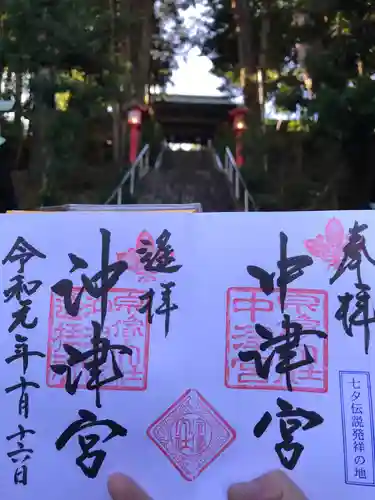 奉拝
中津宮
七夕伝説発祥の地
遥拝
沖津宮
令和元年十月十六日